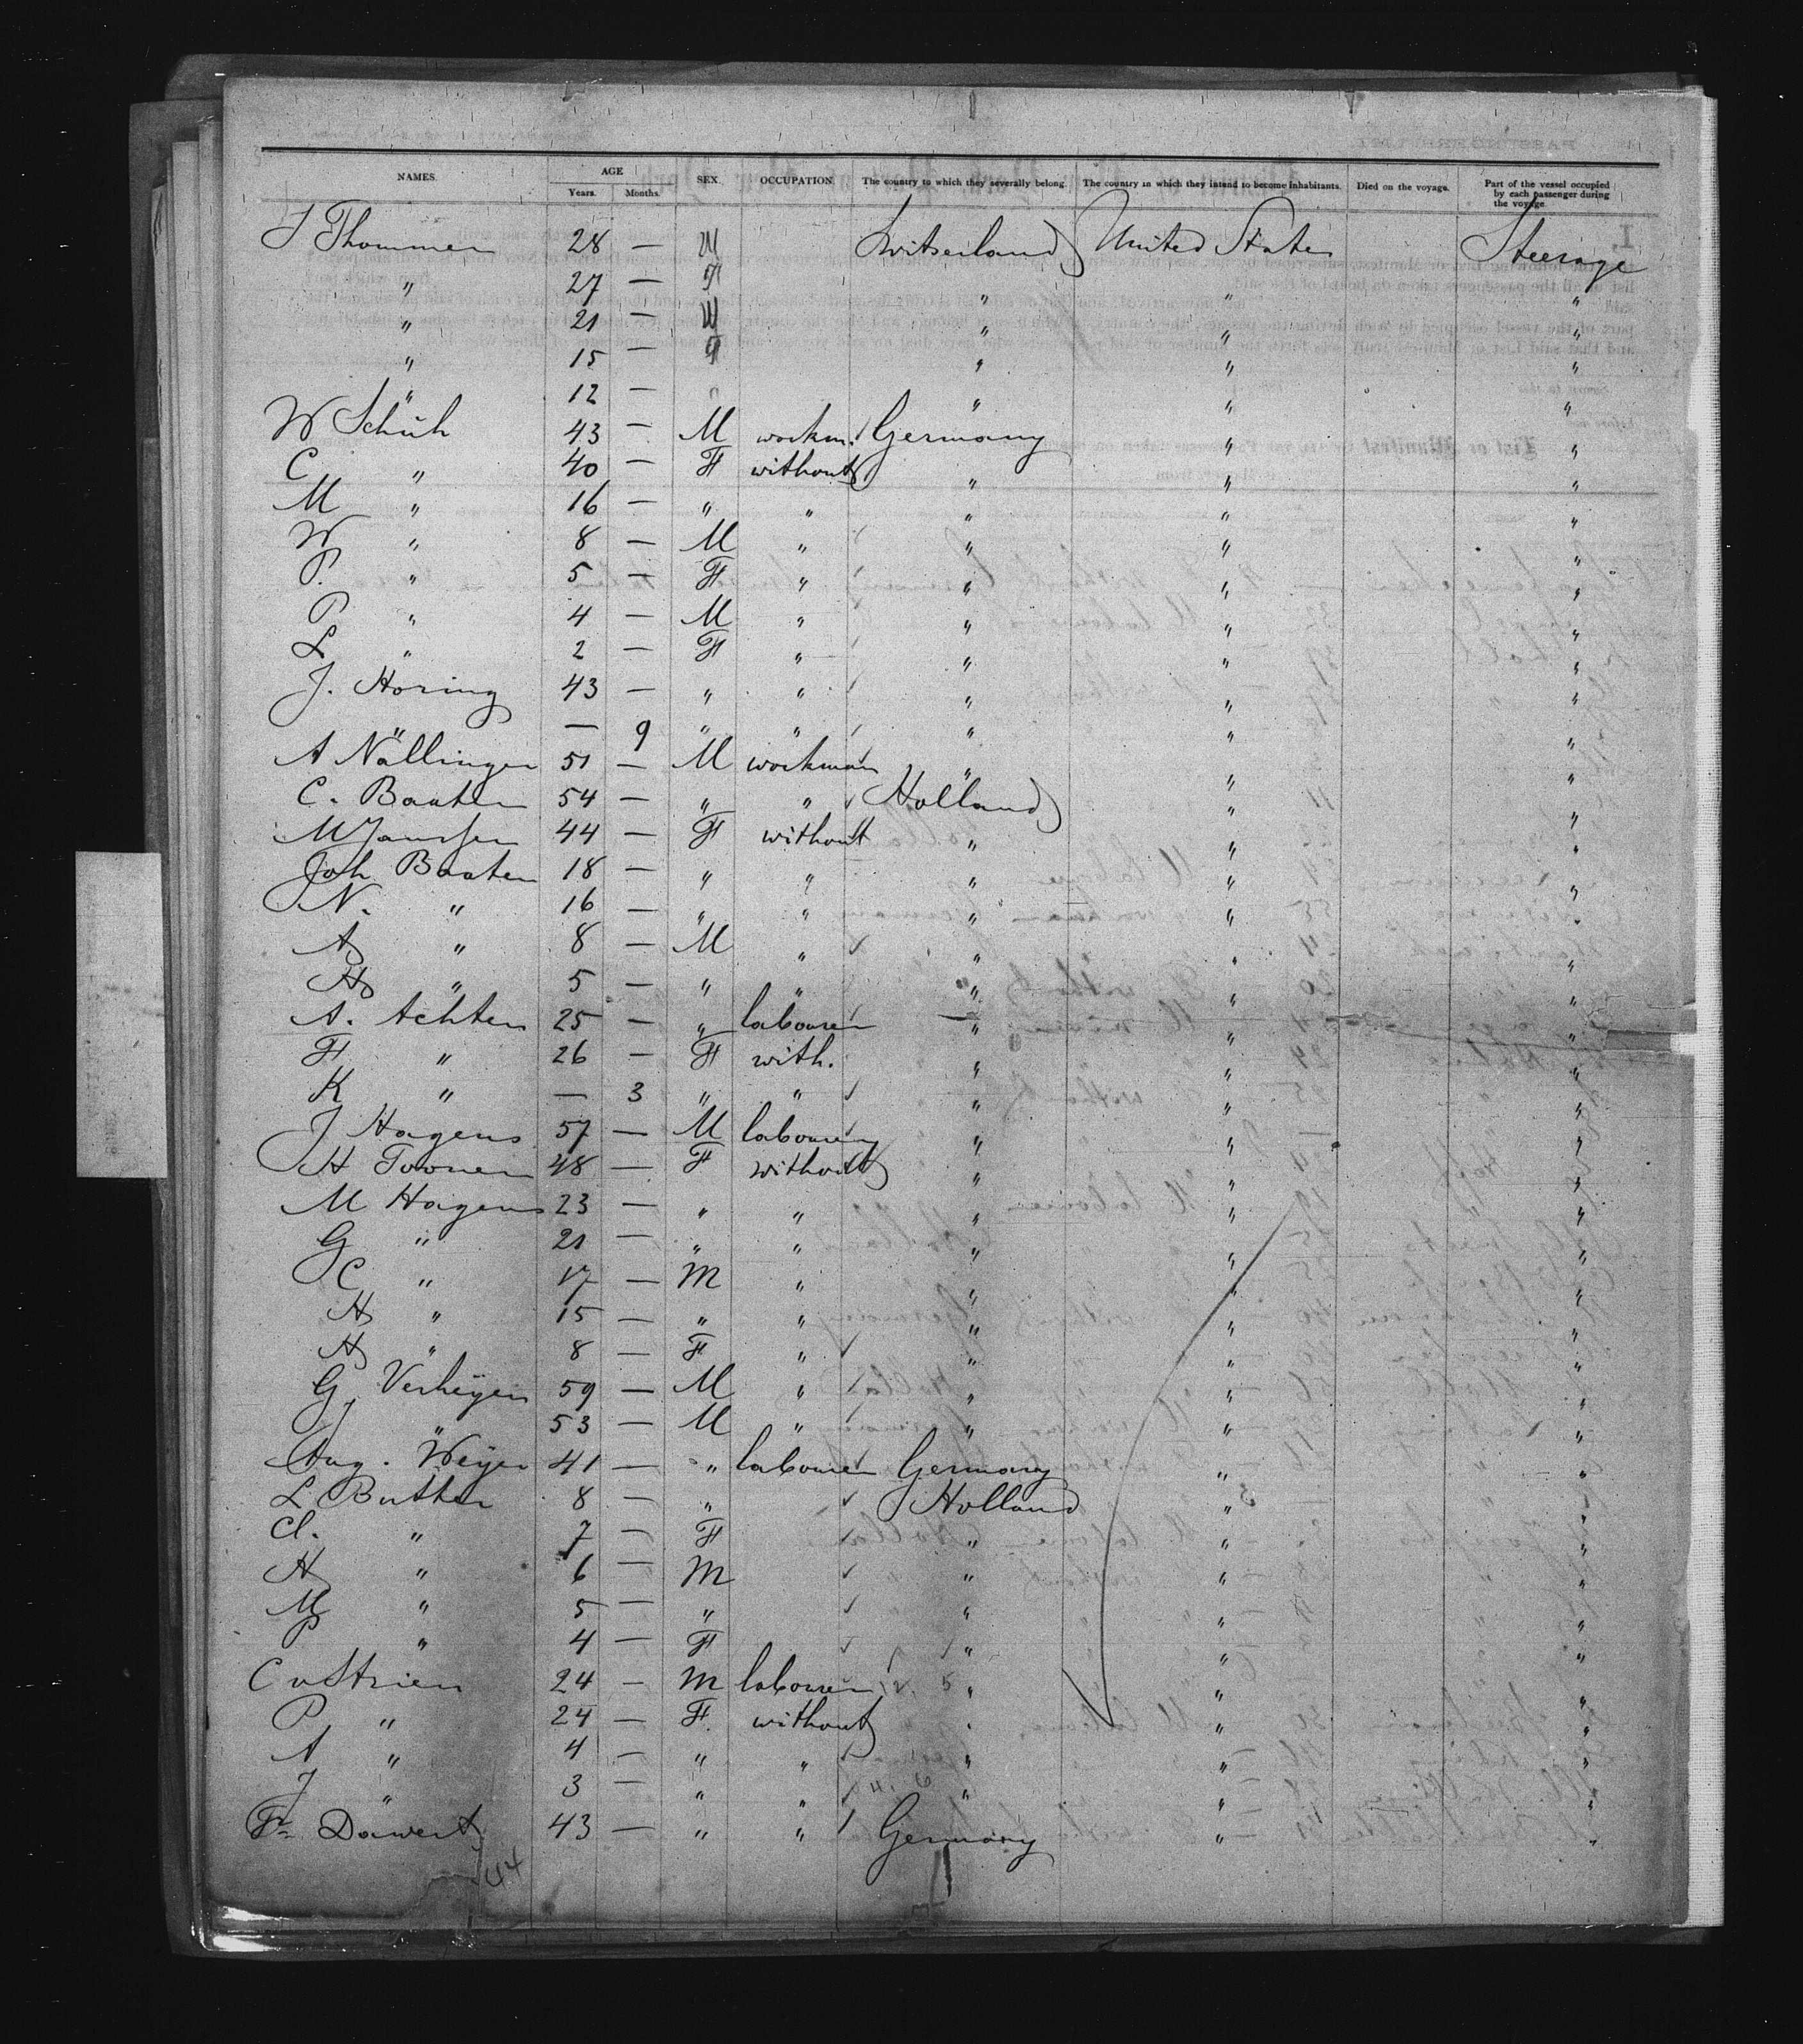 NAMES. AGE SEX. OCCUPATION. The country to which they severally belong. The country in which they intend to become inhabitants. Died on the voyage. Part of the vessel occupied by each passenger during the voyage.
Years. Months.
J Thommen 28 — M Switserland United States Steerage
" 27 — F " " "
" 21 — M " " "
" 15 — F " " "
" 12 — " " " "
W Schuh 43 — M workm. Germany " "
C " 40 — F without " " "
M " 16 — " " " " "
W " 8 — M " " " "
P. " 5 — F " " " "
P " 4 — M " " " "
L " 2 — F " " " "
J. Horing 43 — " " " " "
" — 9 " " " " "
A Nällinger 51 — M workman " " "
C. Baaten 54 — " " Holland " "
M Janssen 44 — F without " " "
Joh Baaten 18 — " " " " "
N. " 16 — " " " " "
A " 8 — M " " " "
H " 5 — " " " " "
A. Achten 25 — " labourer " " "
F " 26 — F with. " " "
K " — 3 " " " " "
J Hagens 57 — M labourer " " "
H Toonen 48 — F without " " "
M Hagens 23 — " " " " "
G " 21 — " " " " "
C " 17 — M " " " "
H " 15 — " " " " "
H " 8 — F " " " "
G. Verheijen 59 — M " " " "
J " 53 — M " " " "
Aug. Weijer 41 — " labourer Germany " "
L Butter 8 — " Holland " "
Cl. " 7 — F " " "
H " 6 — M " " "
M " 5 — " " " "
P " 4 — F " " "
C v Strien 24 — M labourer " " "
P " 24 — F. without " " "
A " 4 — " " " " "
J " 3 — " " " " "
Fr. Dawert 43 — " " Germany " "
44